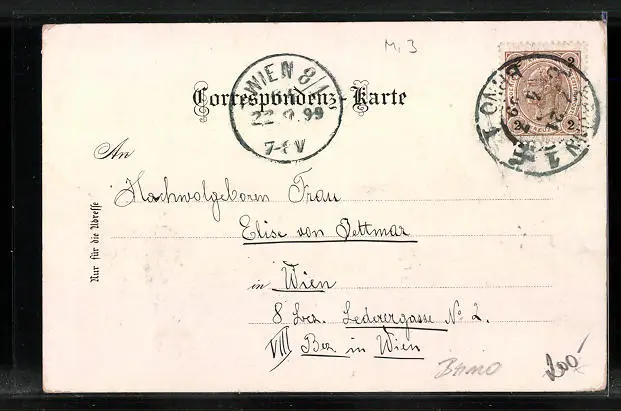 M. 3
Correspondenz-Karte
WIEN 8/1
22.9.99
7-8V
BRÜNN 1
BRNO 1
2 2
2 2
An
Hochwolgeboren Frau
Elise von Dettmar
in Wien
8 Bez. Lederergasse No 2.
VIII Bez in Wien
Nur für die Adresse
Brno
200